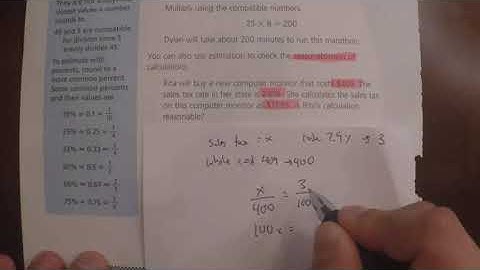 round to.
48 and 5 are compatible
for division since 5
evenly divides 45.
To estimate with
percents, round to a
more common percent.
Some common percents
and their values are
10% = 0.1 =
25% = 0.25 =
33% ≈ 0.33 ≈
50% = 0.5 =
66% ≈ 0.67 ≈
75% = 0.75 =
Multiply using the compatible numbers.
25 × 8 = 200
Dylan will take about 200 minutes to run this marathon.
You can also use estimation to check the reasonableness of
calculations.
Rita will buy a new computer monitor that costs $409. The
sales tax rate in her state is 2.9%. She calculates the sales tax
on this computer monitor as Is Rita's calculation
reasonable?
sales tax = x rate 2.9% → 3
whole cost 409 → 400
x/400 = 3/100
100x =